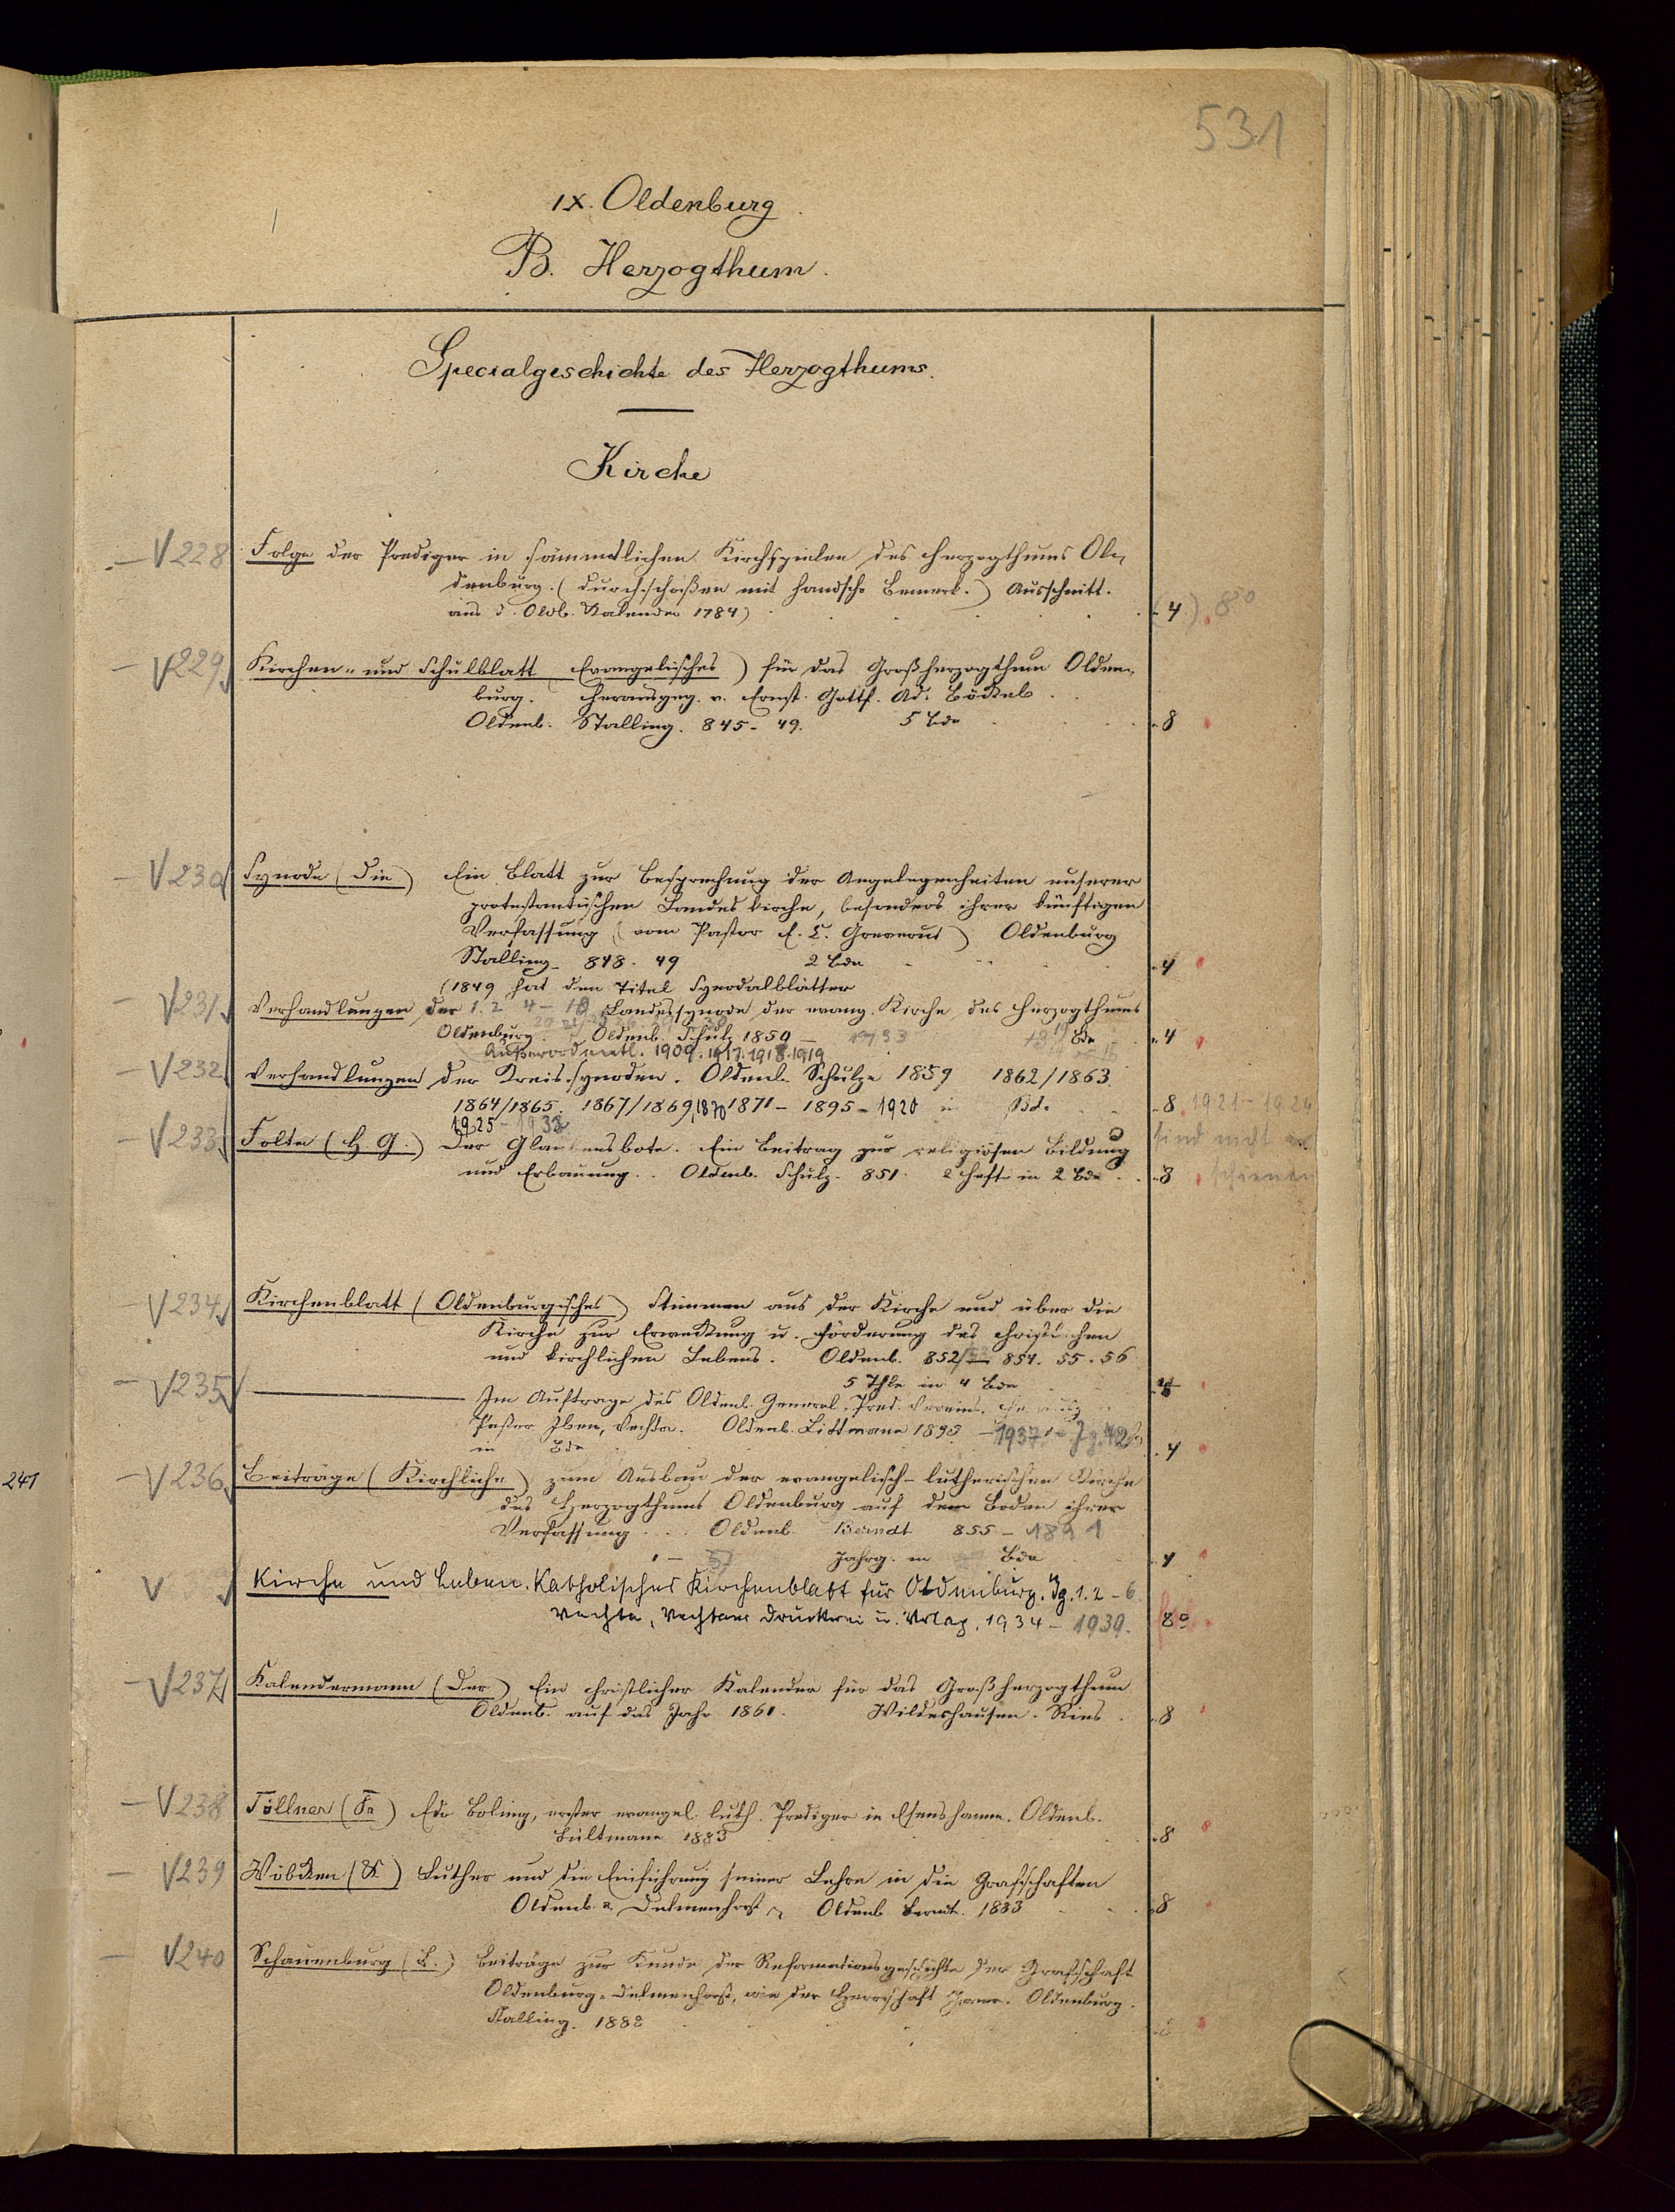 531
IX. Oldenburg
B. Herzogthum.
Specialgeschichte des Herzogthums.
Kirche
V 228 Folge der Prediger in sämmtlichen Kirchspielen des Herzogthums Ol-
denburg. (durchschoßen mit handsch. Bemerk.) Ausschnitt.
aus d. Oldb. Kalender 1784) 4) 8°
V 229 Kirchen- und Schulblatt (Evangelisches) für das Großherzogthum Olden-
burg. Herausgeg. v. Ernst Gottf. Ad. Böckel.
Oldenb. Stalling. 845-49. 5 Bde 8
V 230 Synode (Die) Ein Blatt zur Besprechung der Angelegenheiten unserer
protestantischen Landeskirche, besonders ihrer künftigen
Verfassung (vom Pastor E. C. Greverus) Oldenburg
Stalling. 848. 49 2 Bde 4
(1849 hat den Titel Synodalblätter
V 231 Verhandlungen der 1. 2. 4- Landessynode der evang. Kirche des Herzogthums
Oldenburg. Oldenb. Schulz 1850 - 1933 Bde 4
Außerordentl. 1909. 1917. 1918. 1919
V 232 Verhandlungen der Kreissynoden. Oldenb. Schulze 1859 1862/1863
1864/1865. 1867/1869, 1870 1871 - 1895 - 1920 in Bd. 8 1921-1924
1925 - 1933 sind nicht er
V 233 Folte (H. G.) Der Glaubensbote. Ein Beitrag zur religiösen Bildung
und Erbauung. Oldenb. Schulz. 851. 2 Hefte in 2 Bde 8 schienen
V 234 Kirchenblatt (Oldenburgisches) Stimmen aus der Kirche und über die
Kirche zur Erweckung u. Förderung des christlichen
und kirchlichen Lebens. Oldenb. 852/53 854. 55. 56
5 Thle in 4 Bde
V 235 — Im Auftrage des Oldenb. General-Pred. Vereins.
Pastor Iben, Vechta. Oldenb. Littmann 1895 - 1937 Jg. 42
in Bde 4
241
V 236 Beiträge (Kirchliche) zum Ausbau der evangelisch-lutherischen Kirche
des Herzogthums Oldenburg auf dem Boden ihrer
Verfassung Oldenb. Berndt 855 - 1891
1 - 37 Jahrg. in Bde 4
V Kirche und Leben. Katholisches Kirchenblatt für Oldenburg. Jg. 1. 2 - 6.
Vechta, Vechtaer Druckerei u. Verlag. 1934 - 1939. 8°
V 237 Kalendermann (Der) Ein christlicher Kalender für das Großherzogthum
Oldenb. auf das Jahr 1861. Wildeshausen. Ries 8
V 238 Töllner (Fr) Edo Boling, erster evangel. luth. Prediger in Esenshamm. Oldenb.
Bültmann 1883 8
V 239 Wöbcken (K) Luther und die Einführung seiner Lehre in die Grafschaften
Oldenb. u. Delmenhorst. Oldenb. Berndt. 1883 8
V 240 Schauenburg (L.) Beiträge zur Kunde der Reformationsgeschichte der Grafschaft
Oldenburg-Delmenhorst, wie der Herrschaft Jever. Oldenburg.
Stalling. 1888